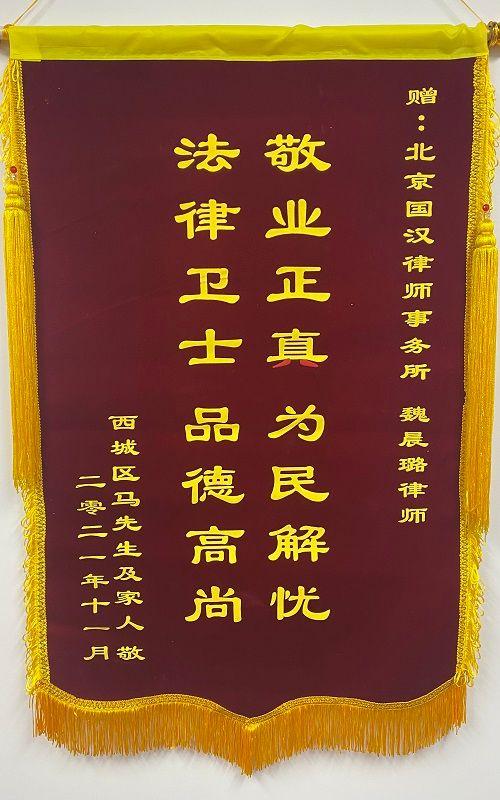 赠：北京国汉律师事务所 魏晨璐律师
敬业正真 为民解忧
法律卫士 品德高尚
西城区马先生及家人敬
二零二一年十一月